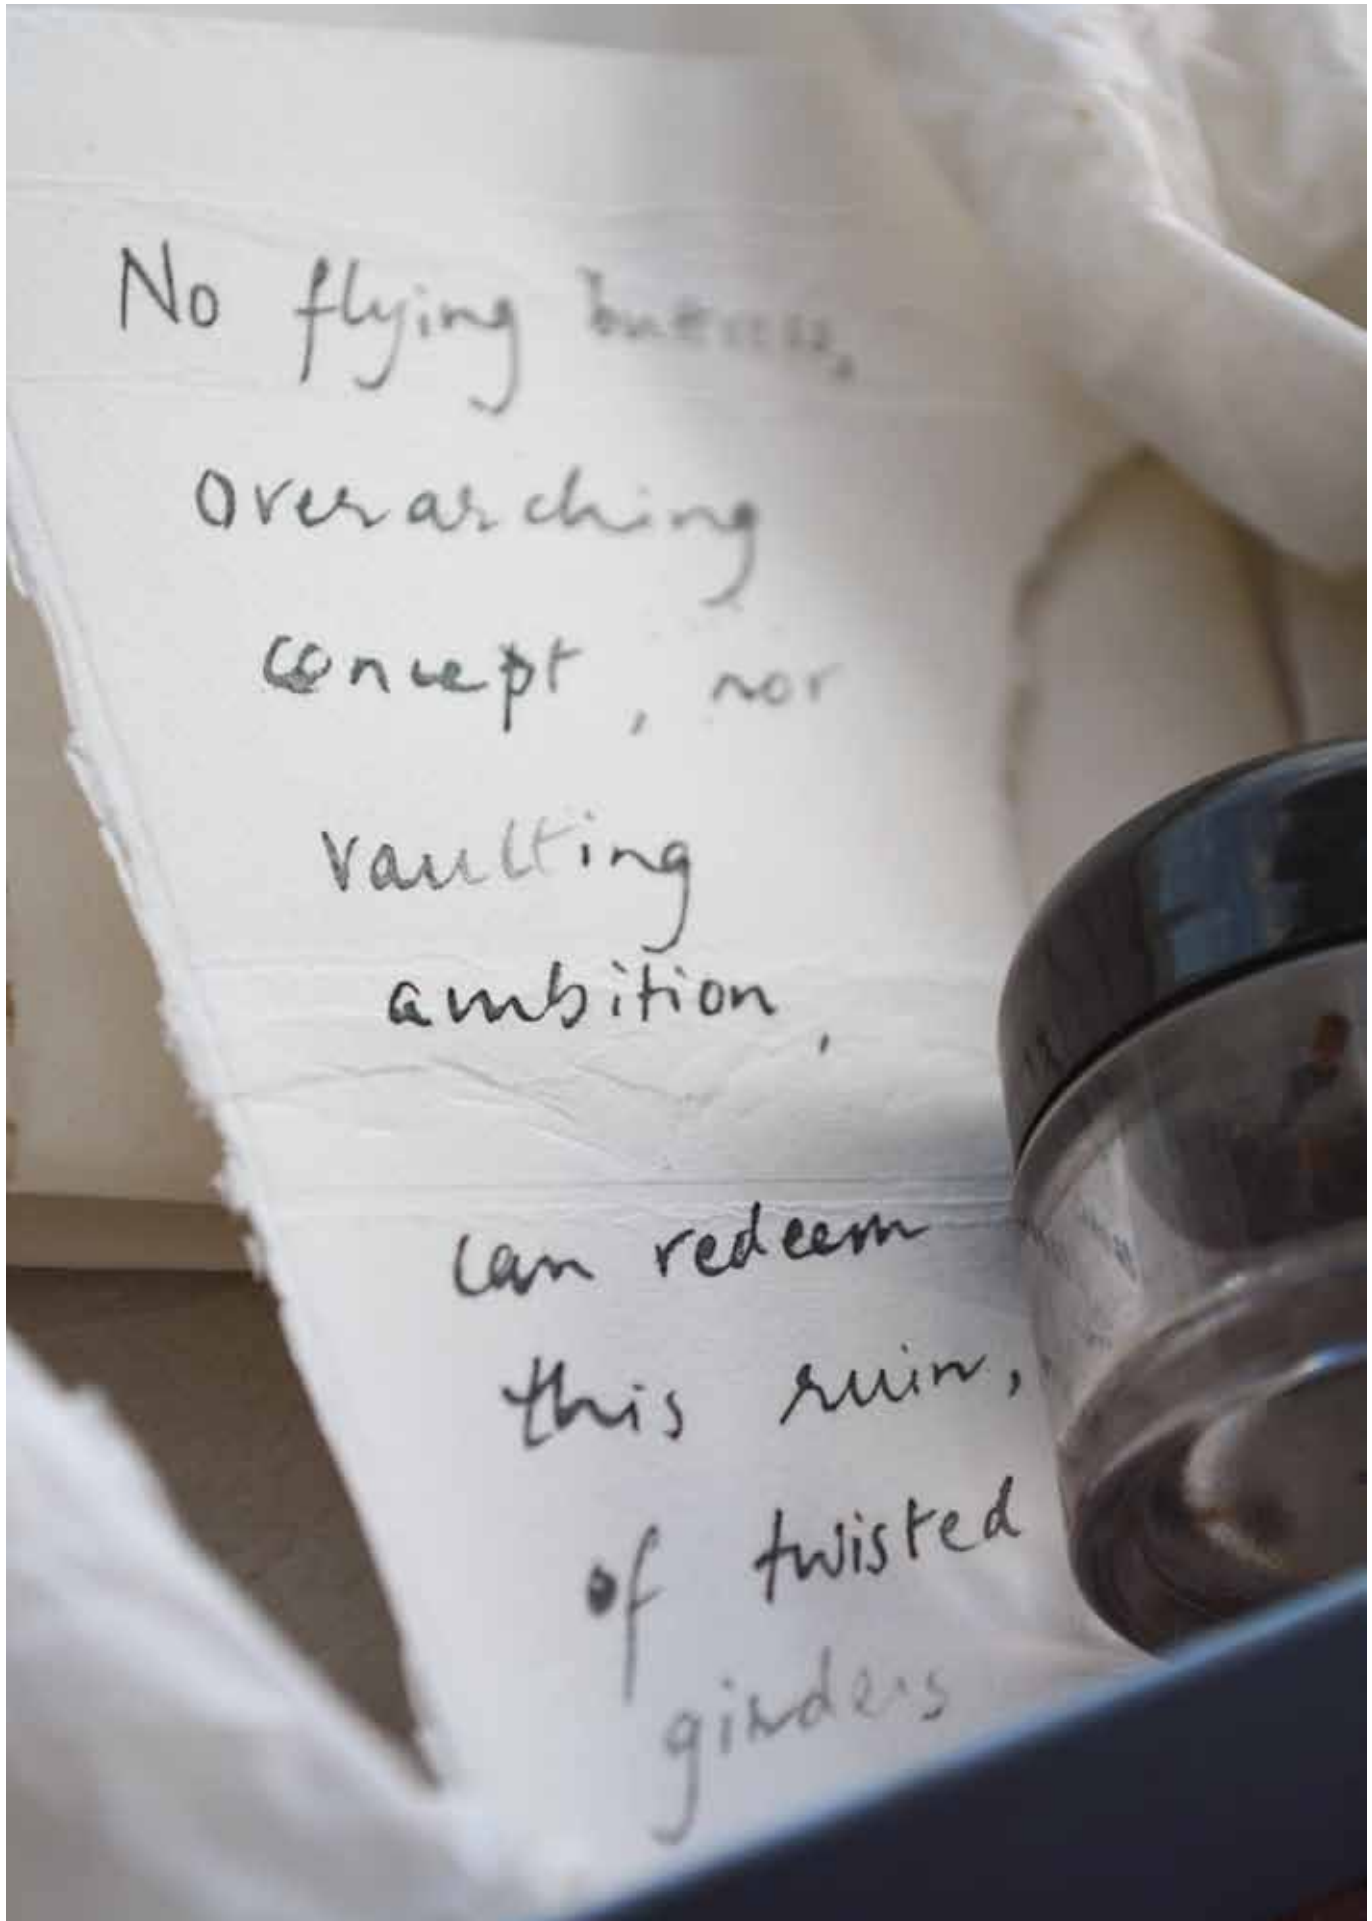 No flying
overarching
concept, nor
vaulting
ambition,
can redeem
this ruin,
of twisted
girders